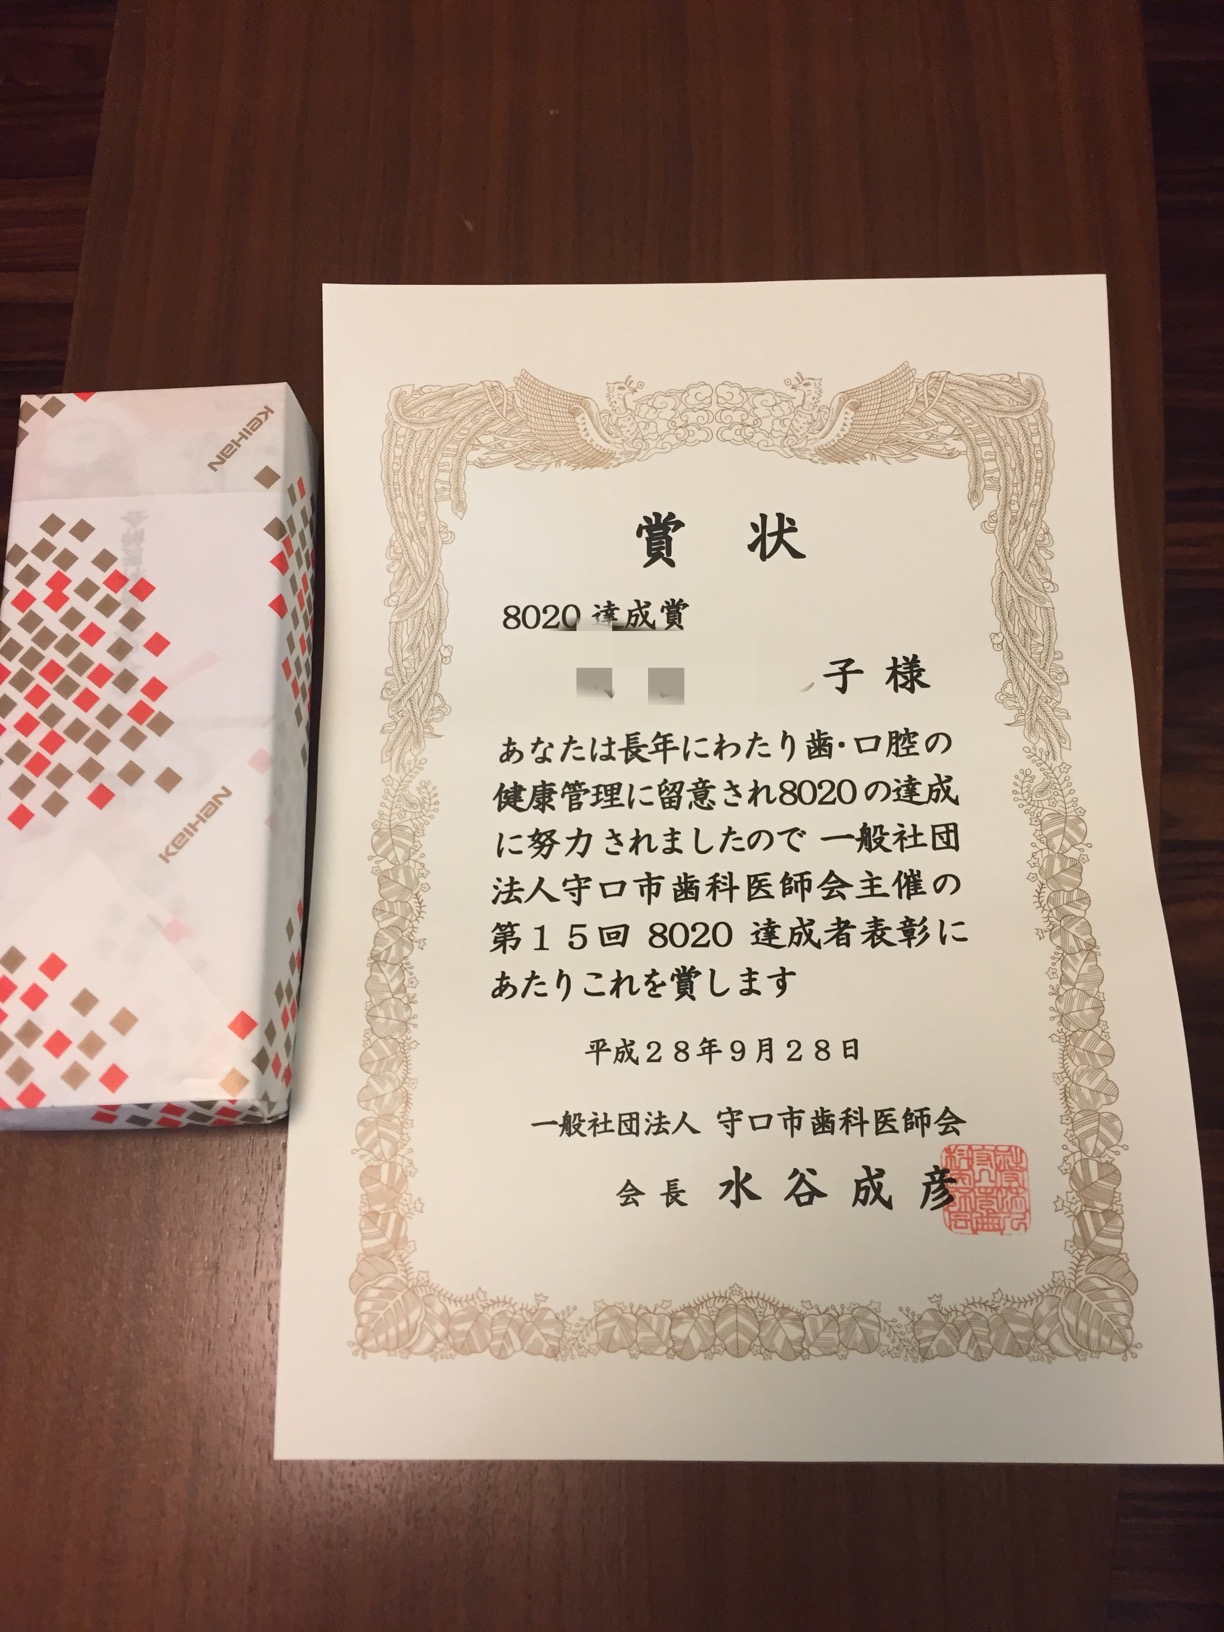 KEIHAN
KEIHAN
賞 状
8020 達成賞
子 様
あなたは長年にわたり歯・口腔の
健康管理に留意され8020の達成
に努力されましたので 一般社団
法人守口市歯科医師会主催の
第15回 8020 達成者表彰に
あたりこれを賞します
平成28年9月28日
一般社団法人 守口市歯科医師会
会長 水谷成彦